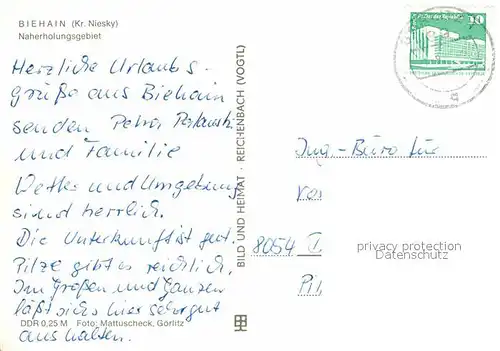 BIEHAIN (Kr. Niesky)
Naherholungsgebiet
Herzliche Urlaubs-
grüße aus Biehain
senden Petra
und Familie
Wetter und Umgebung
sind herrlich.
Die Unterkunft ist gut.
Pilze gibt es reichlich.
Im Großen und Ganzen
läßt sichs hier sehr gut
aushalten.
DDR 0,25 M Foto: Mattuscheck, Görlitz
BILD UND HEIMAT · REICHENBACH (VOGTL)
10
Ing.-Büro für
8054
privacy protection
Datenschutz